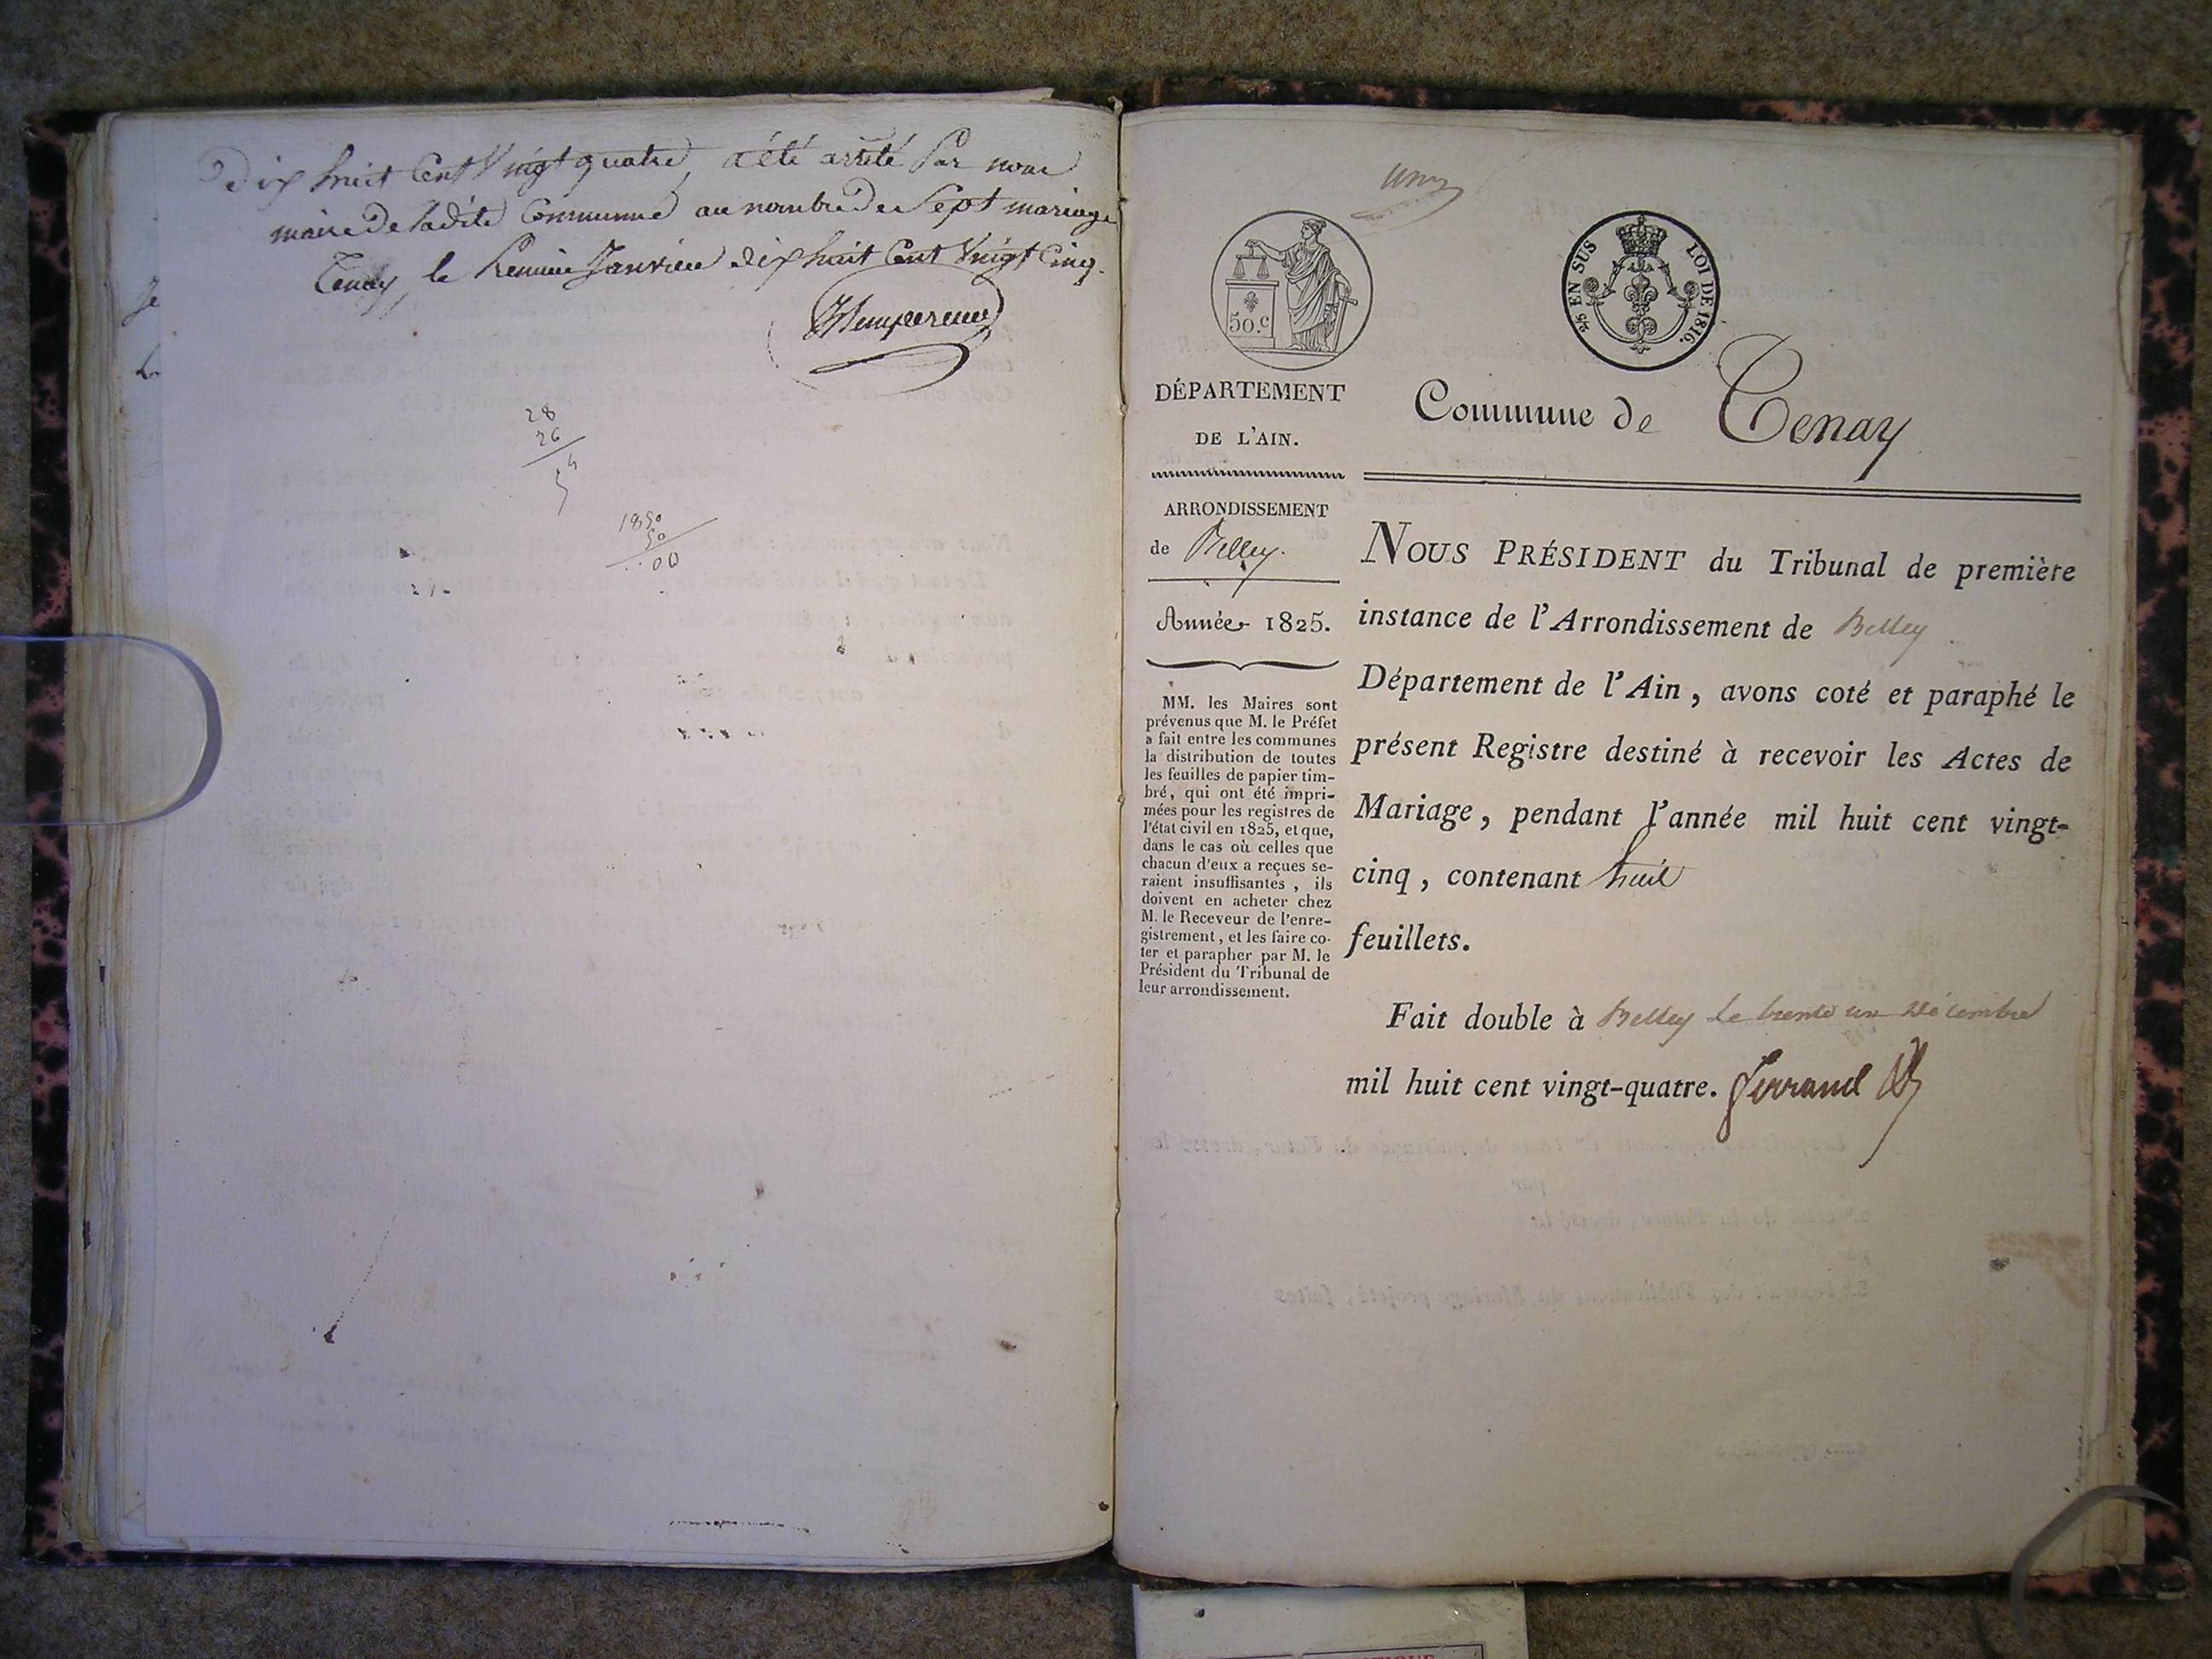 Dix huit Cent Vingt quatre, a été arrêté Par nous
maire De ladite Commune au nombre De Sept mariage
Tenay, le Premier Janvier dix huit Cent Vingt Cinq.
28
26
54
1850
50
00
50.c
2/5 EN SUS
LOI DE 1816.
DÉPARTEMENT
DE L'AIN.
Commune de Tenay
ARRONDISSEMENT
de Belley.
Année 1825.
MM. les Maires sont
prévenus que M. le Préfet
a fait entre les communes
la distribution de toutes
les feuilles de papier tim-
bré, qui ont été impri-
mées pour les registres de
l'état civil en 1825, et que,
dans le cas où celles que
chacun d'eux a reçues se-
raient insuffisantes, ils
doivent en acheter chez
M. le Receveur de l'enre-
gistrement, et les faire co-
ter et parapher par M. le
Président du Tribunal de
leur arrondissement.
NOUS PRÉSIDENT du Tribunal de première
instance de l'Arrondissement de Belley
Département de l'Ain, avons coté et paraphé le
présent Registre destiné à recevoir les Actes de
Mariage, pendant l'année mil huit cent vingt-
cinq, contenant huit
feuillets.
Fait double à Belley le trente un Décembre
mil huit cent vingt-quatre. Ferrand